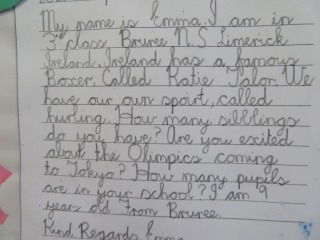 My name is Emma. I am in
3rd class Bruree N.S Limerick
Ireland. Ireland has a famous
Boxer. Called Katie Talor. We
have our own spoirt, called
hurling. How many silblings
do you have? Are you exited
about the Olimpics coming
to Tokyo? How many pupils
are in your school? I am 9
year old From Bruree.
Kind Regards Emma